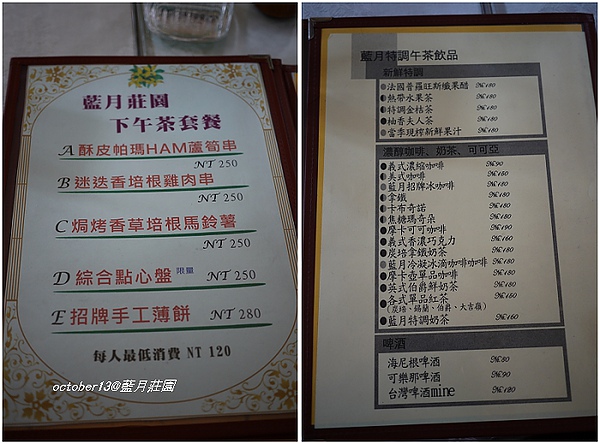 藍月莊園
下午茶套餐
A 酥皮帕瑪HAM蘆筍串
NT 250
B 迷迭香培根雞肉串
NT 250
C 焗烤香草培根馬鈴薯
NT 250
D 綜合點心盤 限量 NT 250
E 招牌手工薄餅 NT 280
每人最低消費 NT 120
october13@藍月莊園
藍月特調午茶飲品
新鮮特調
法國普羅旺斯纖果醋 NT.180
熱帶水果茶 NT.180
特調金桔茶 NT.180
柚香夫人茶 NT.180
當季現榨新鮮果汁 NT.180
濃醇咖啡、奶茶、可可亞
義式濃缩咖啡 NT.90
美式咖啡
藍月招牌冰咖啡
拿鐵
卡布奇諾
焦糖瑪奇朵
摩卡可可咖啡
義式香濃巧克力
炭培拿鐵奶茶
藍月冷凝冰滴咖啡咖啡
摩卡壺單品咖啡
英式伯爵鮮奶茶
各式單品紅茶
(炭培、錫蘭、伯爵、大吉嶺)
藍月特調奶茶
啤酒
海尼根啤酒 NT.80
可樂那啤酒 NT.90
台灣啤酒mine NT.120